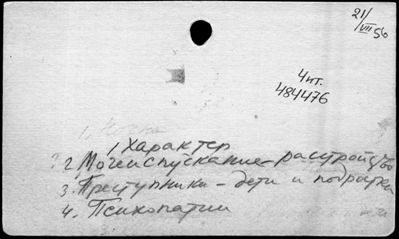 21/VII 56
4 кт.
484476
1, Характер
? 2, Мочеиспускание – расстройство
3. Преступники – дети и подростки
4. Психопатии